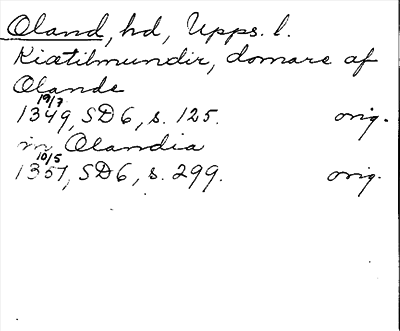 Oland, hd, Upps. l.
Kiætilmundir, domare af
Olande
19/7
1349, SD 6, s. 125. orig.
in Olandia
10/5
1351, SD 6, s. 299. orig.